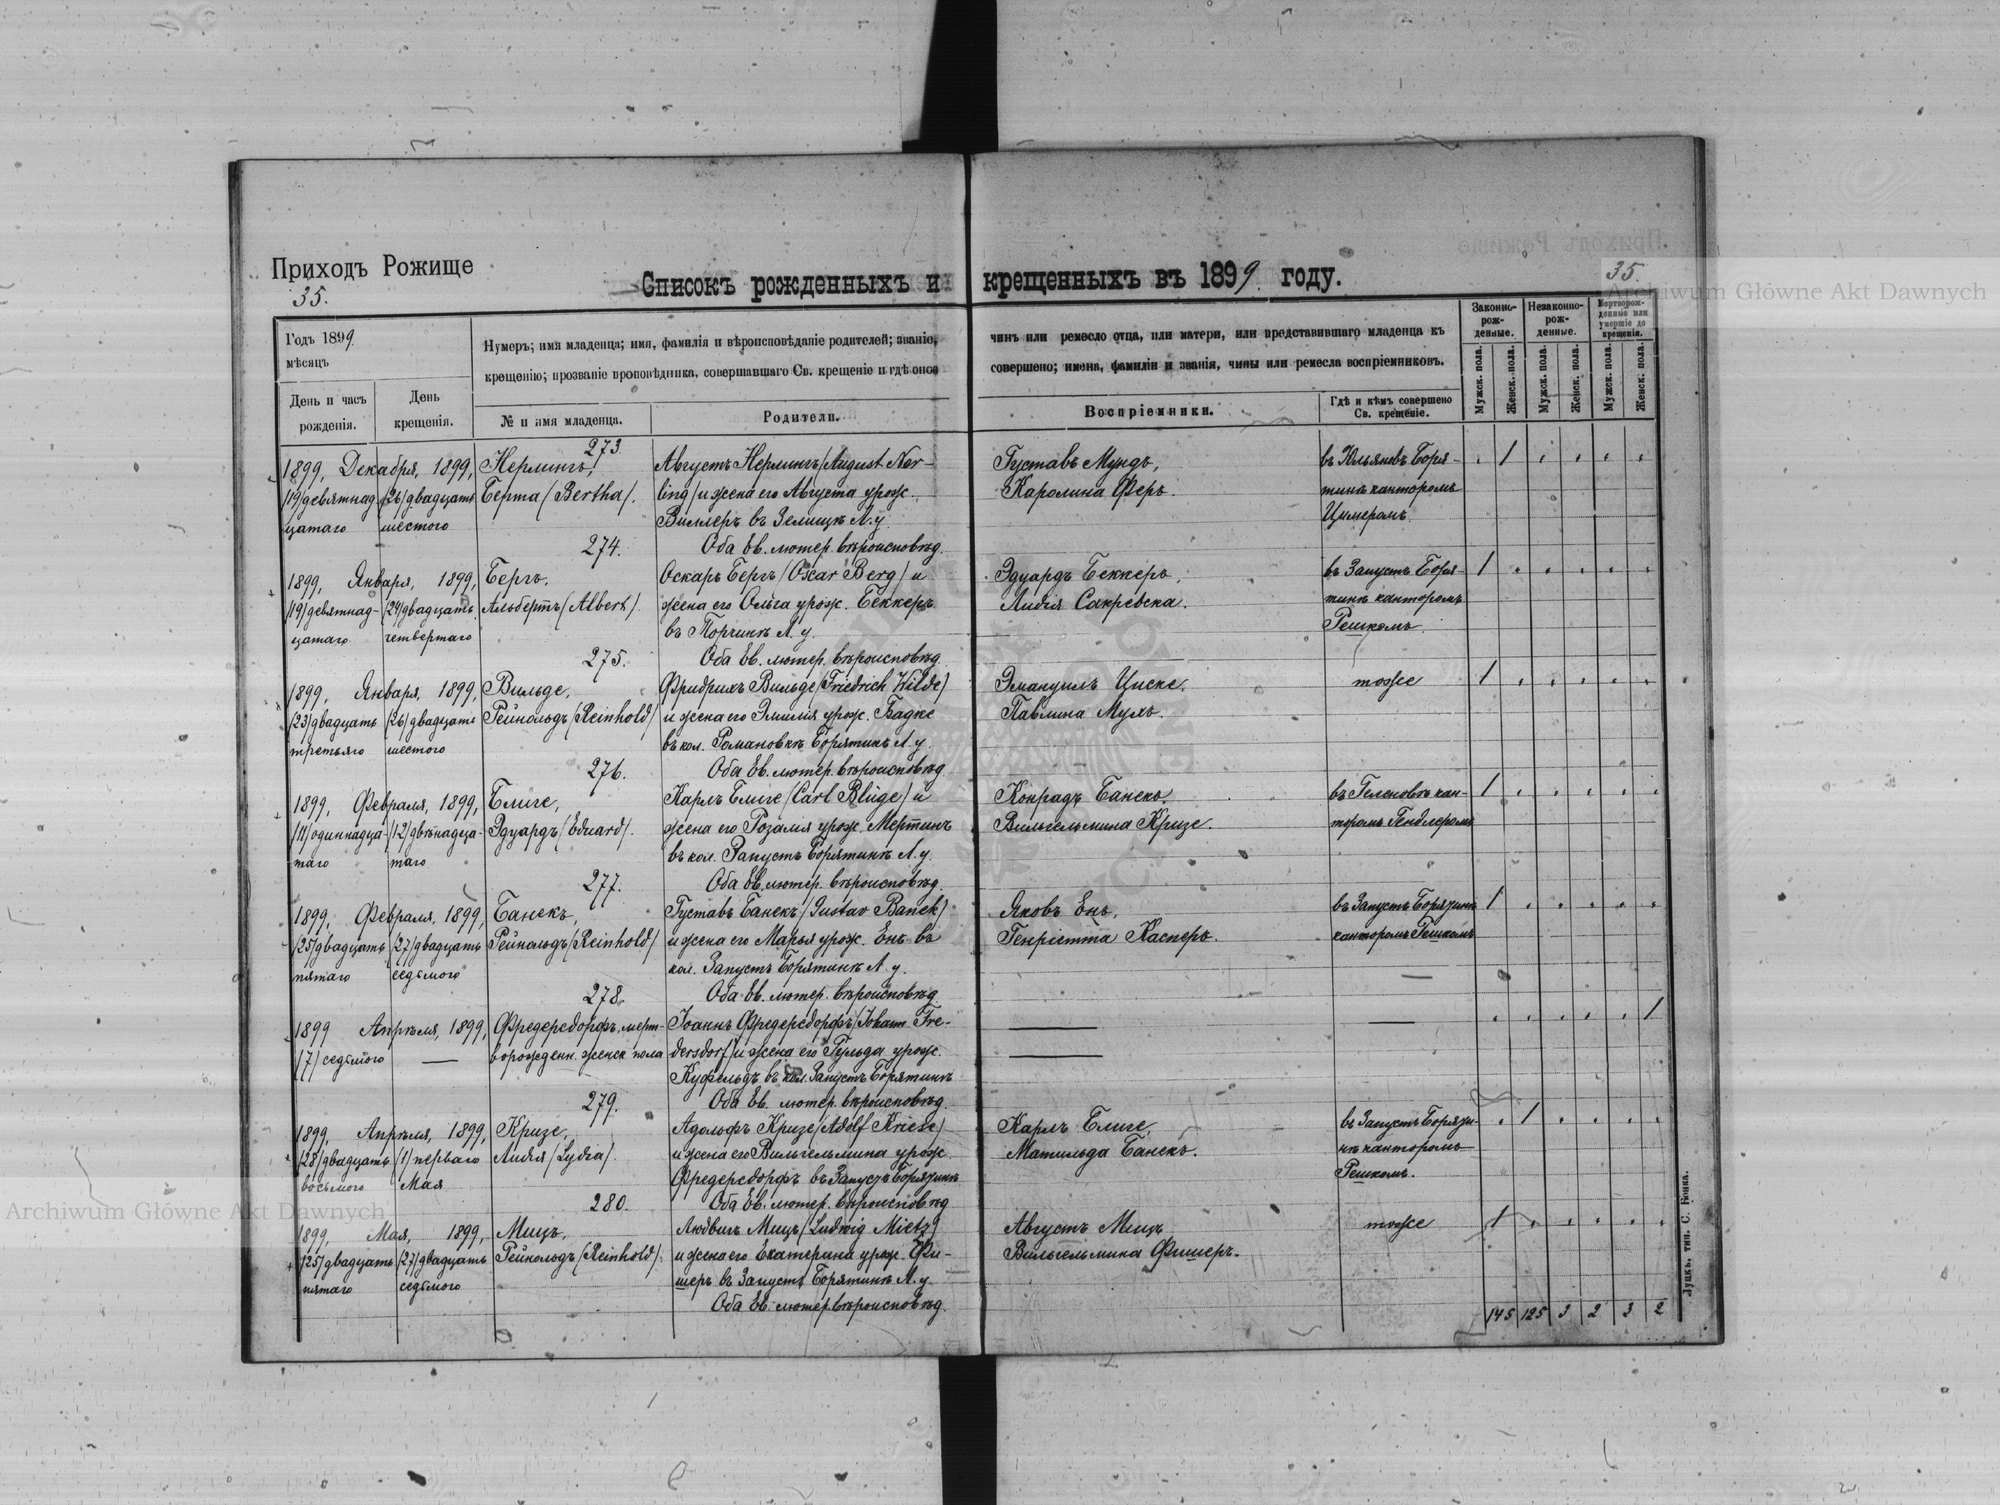 Приходъ Рожище
35.
Списокъ рожденныхъ и крещенныхъ въ 1899 году.
35
Archiwum Główne Akt Dawnych
Годъ 1899
мѣсяцъ
День и часъ
рожденія.
День
крещенія.
Нумеръ; имя младенца; имя, фамилія и вѣроисповѣданіе родителей; званіе,
крещенію; прозваніе проповѣдника, совершавшаго Св. крещеніе и гдѣ оное
№ и имя младенца.
Родители.
чинъ или ремесло отца, или матери, или представившаго младенца къ
совершено; имена, фамиліи и званія, чины или ремесла воспріемниковъ.
Воспріемники.
Гдѣ и кѣмъ совершено
Св. крещеніе.
Законно-
рож-
денные.
Незаконно-
рож-
денные.
Мертворож-
денные или
умершіе до
крещенія.
Мужск. пола.
Женск. пола.
Мужск. пола.
Женск. пола.
Мужск. пола.
Женск. пола.
273
1899, Декабря, 1899,
(19) девятнад-
цатаго
(26) двадцать
шестого
Нерлингъ,
Берта (Bertha).
Августъ Нерлингъ (August Ner-
ling) и жена его Августа урож.
Виллеръ въ Зелицкъ Л. у.
Оба Ев. лютер. вѣроисповѣд.
Густавъ Мундъ,
Каролина Феръ.
въ Юльяновъ Боря-
тинъ канторомъ
Цимеромъ
274.
1899, Января, 1899,
(19) девятнад-
цатаго
(24) двадцать
четвертаго
Бергъ,
Альбертъ (Albert).
Оскаръ Бергъ (Oscar Berg) и
жена его Ольга урож. Беккеръ
въ Торчинѣ Л. у.
Оба Ев. лютер. вѣроисповѣд.
Эдуардъ Беккеръ,
Лидія Сакревска.
въ Запустъ Боря-
тинѣ канторомъ
Решкомъ.
275.
1899, Января, 1899,
(23) двадцать
третьяго
(26) двадцать
шестого
Вильде,
Рейнольдъ (Reinhold)
Фридрихъ Вильде (Friedrich Wilde)
и жена его Эмилія урож. Бадке
въ кол. Романовкѣ Борятинъ Л. у.
Оба Ев. лютер. вѣроисповѣд.
Эмануилъ Циске,
Павлина Мухъ.
тоже
276.
1899, Февраля, 1899,
(11) одиннадца-
таго
(12) двѣнадца-
таго
Блиге,
Эдуардъ (Eduard).
Карлъ Блиге (Carl Blüge) и
жена его Розалія урож. Мертинъ
въ кол. Запустъ Борятинѣ Л. у.
Оба Ев. лютер. вѣроисповѣд.
Конрадъ Банекъ,
Вильгельмина Кризе.
въ Геленовкѣ кан-
торомъ Гендлеромъ
277.
1899, Февраля, 1899,
(25) двадцать
пятаго
(27) двадцать
седьмого
Банекъ,
Рейнольдъ (Reinhold)
Густавъ Банекъ (Gustav Banek)
и жена его Марья урож. Енъ въ
кол. Запустъ Борятинѣ Л. у.
Оба Ев. лютер. вѣроисповѣд
Яковъ Енъ,
Генріетта Касперъ.
въ Запустъ Борятинѣ
канторомъ Решкомъ
278.
1899 Апрѣля, 1899,
(7) седьмого
Фредерсдорфъ, мерт-
ворожденн. женск. пола
Іоаннъ Фредерсдорфъ (Johann Fre-
dersdorf) и жена его Гульда урож.
Куфельдъ въ кол. Запустъ Борятинѣ
Оба Ев. лютер. вѣроисповѣд.
279.
1899, Апрѣля, 1899,
(28) двадцать
восьмого
(1) перваго
Мая
Кризе,
Лидія (Lydia).
Адольфъ Кризе (Adolf Kriese)
и жена его Вильгельмина урож.
Фредерсдорфъ въ Запустъ Борятинѣ
Оба Ев. лютер. вѣроисповѣд
Карлъ Блиге,
Матильда Банекъ.
въ Запустъ Боряти-
нѣ канторомъ
Решкомъ.
280.
1899, Мая, 1899,
(25) двадцать
пятаго
(27) двадцать
седьмого
Мицъ,
Рейнольдъ (Reinhold).
Людвигъ Мицъ (Ludwig Mietz)
и жена его Екатерина урож. Фи-
шеръ въ Запустъ Борятинѣ Л. у.
Оба Ев. лютер. вѣроисповѣд.
Августъ Мицъ
Вильгельмина Фишеръ.
тоже
145 125 3 2 3 2
Луцкъ, тип. С. Бонка.
Archiwum Główne Akt Dawnych